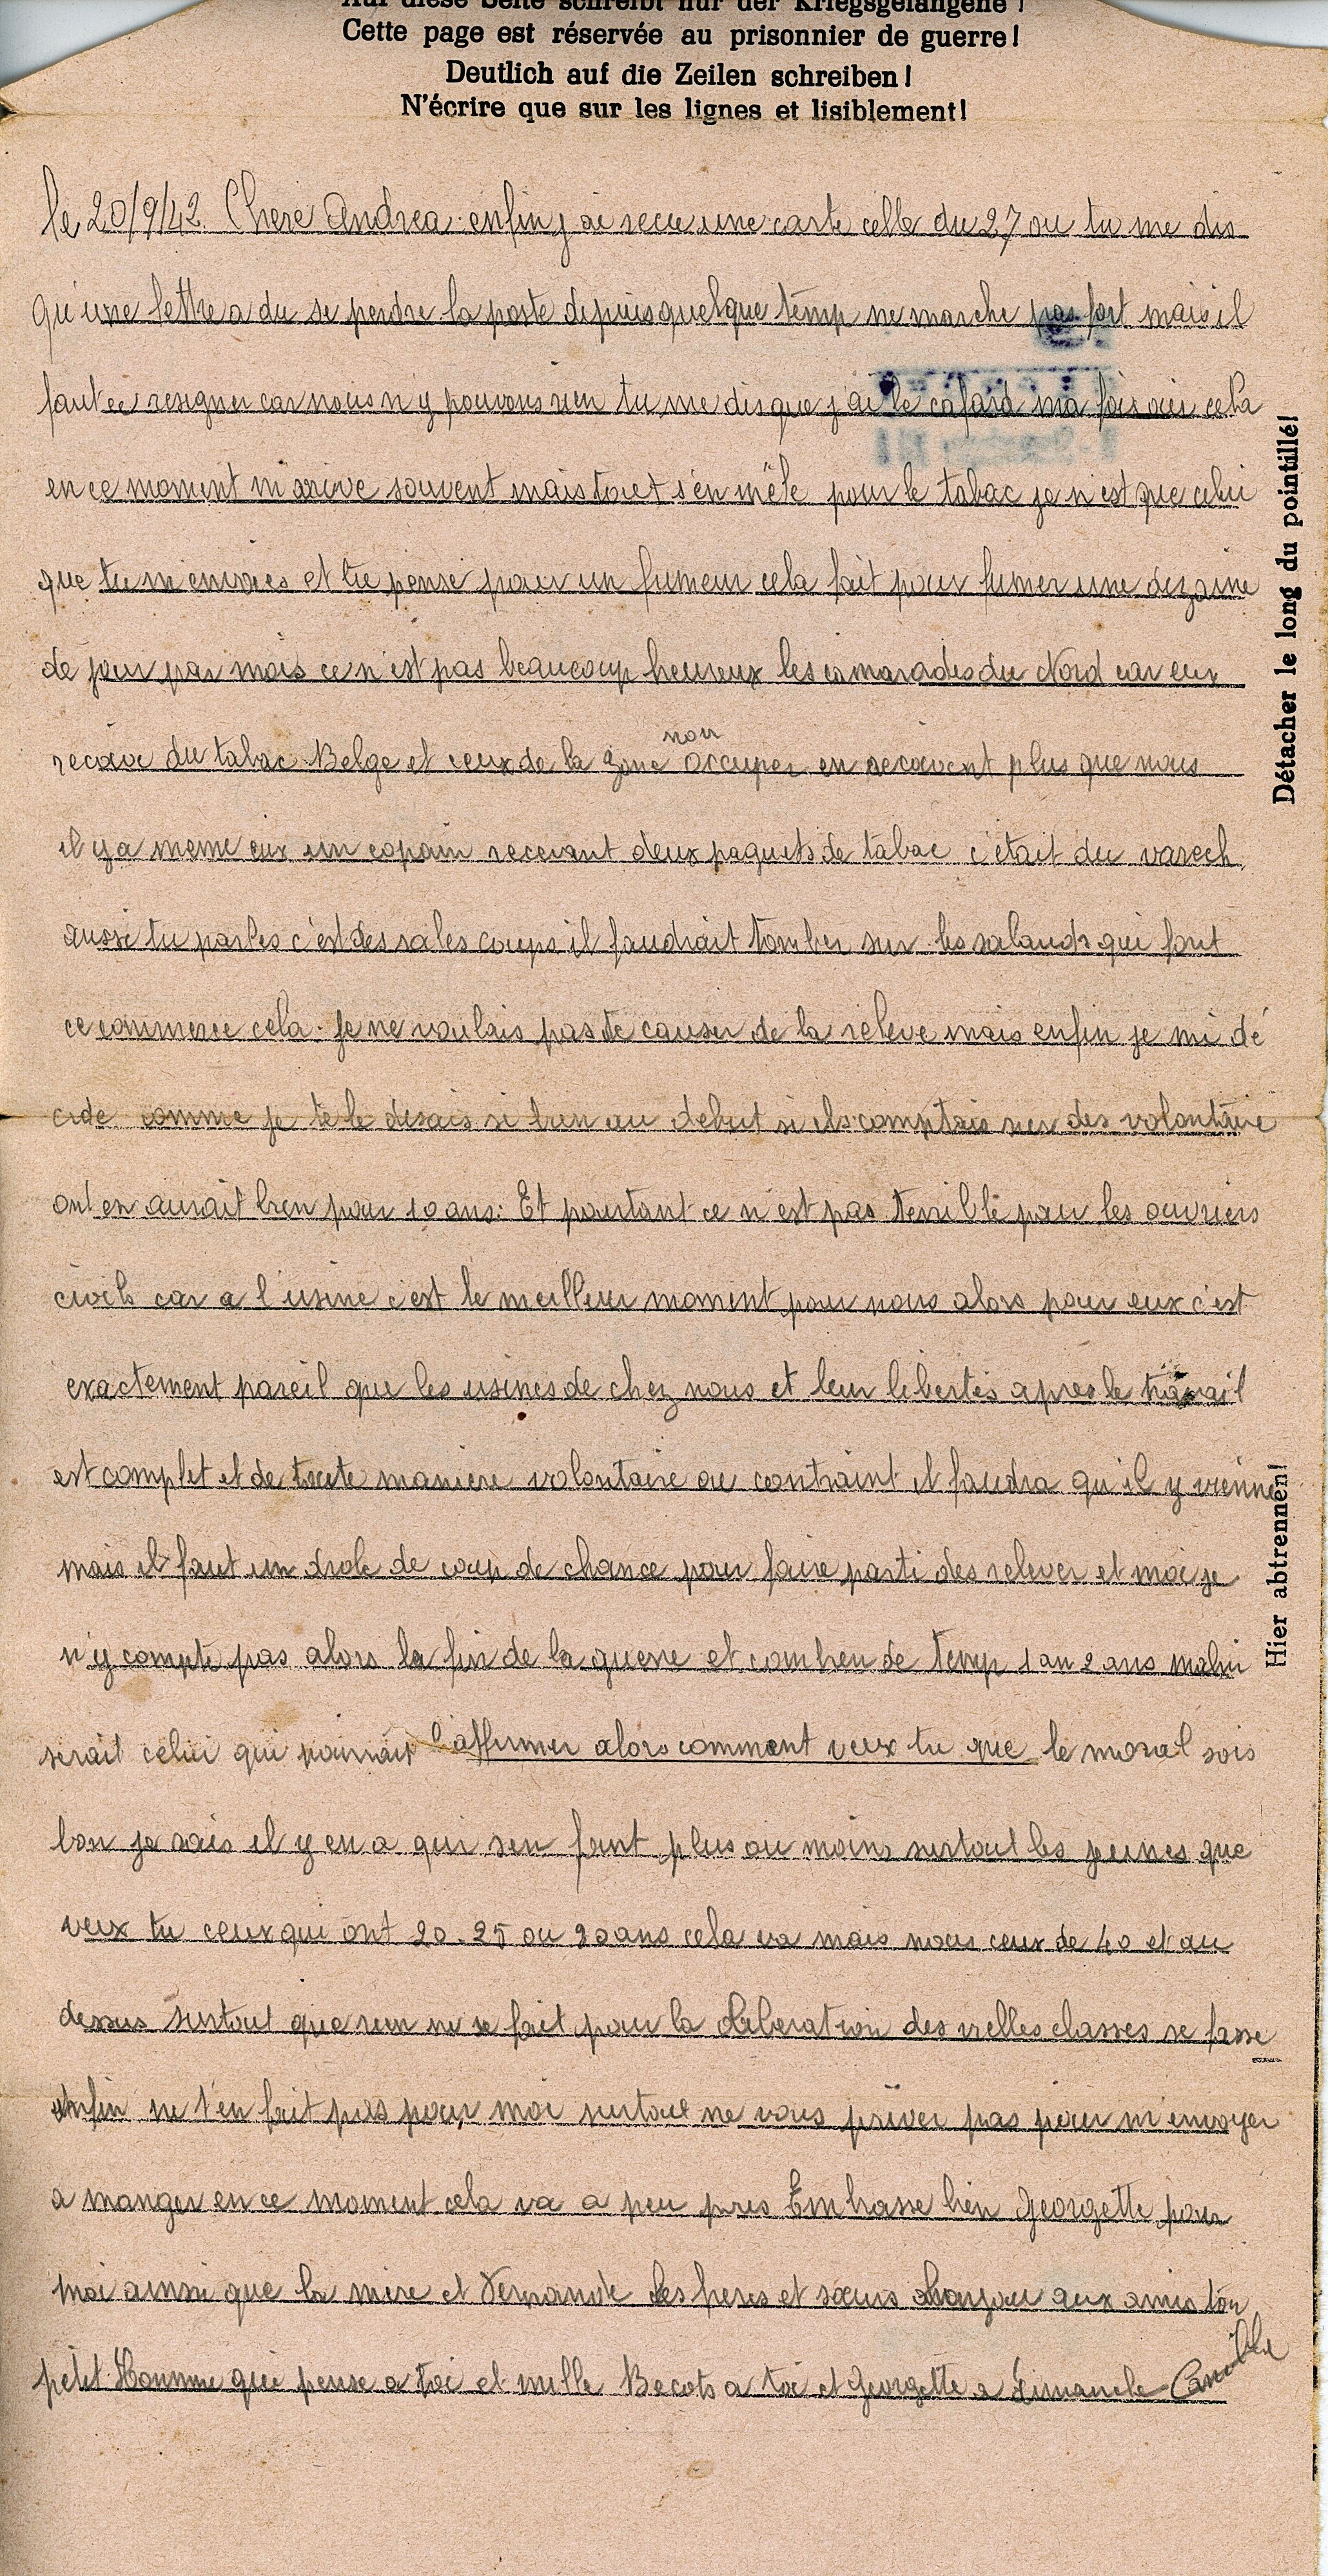 Auf diese Seite schreibt nur der Kriegsgefangene!
Cette page est réservée au prisonnier de guerre!
Deutlich auf die Zeilen schreiben!
N'écrire que sur les lignes et lisiblement!
le 20/9/42. Chere Andrea enfin j ai recue une carte celle du 27 ou tu me dis
qu'une lettre a du se perdre la poste depuis quelque temp ne marche pas fort mais il
faut ce resigner car nous n y pouvons rien tu me dis que j ai le cafard ma foi oui cela
en ce moment m arrive souvent mais tout s'en mêle pour le tabac je n'est que celui
que tu m envoies et tu pense pour un fumeur cela fait pour fumer une dizaine
de jour par mois ce n'est pas beaucoup heureux les camarades du Nord car eux
recoive du tabac Belge et ceux de la zone non occuper en recoivent plus que nous
il y a meme eux un copain recevant deux paquets de tabac c'était du varech
aussi tu parles c'est des sales coups il faudrait tomber sur les salauds qui font
ce commerce cela. Je ne voulais pas te causer de la releve mais enfin je mi dé
cide comme je te le disais si bien au debut si ils comptais sur des volontaire
ont en aurait bien pour 10 ans. Et pourtant ce n'est pas terrible pour les ouvriers
civils car a l'usine c'est le meilleur moment pour nous alors pour eux c'est
exactement pareil que les usines de chez nous et leur libertés apres le travail
est complet et de toute maniere volontaire ou contraint il faudra qu'il y vienne
mais il faut un drole de coup de chance pour faire parti des relever et moi je
n'y compte pas alors la fin de la guerre et combien de temp 1 an 2 ans malin
serait celui qui pourrait l'affirmer alors comment veux tu que le moral sois
bon je sais il y en a qui sen font plus ou moins surtout les jeunes que
veux tu ceux qui ont 20-25 ou 30 ans cela va mais nous ceux de 40 et au
dessus surtout que rien ne se fait pour la liberation des vielles classes se fasse
enfin ne t'en fait pas pour moi surtout ne vous priver pas pour m'envoyer
a manger en ce moment cela va a peu pres Embrasse bien Georgette pour
moi ainsi que la mere et Fernande les freres et sœurs bonjour aux amis ton
petit Homme qui pense a toi et mille Becots a toi et Georgette a Dimanche Camille
Détacher le long du pointillé!
Hier abtrennen!